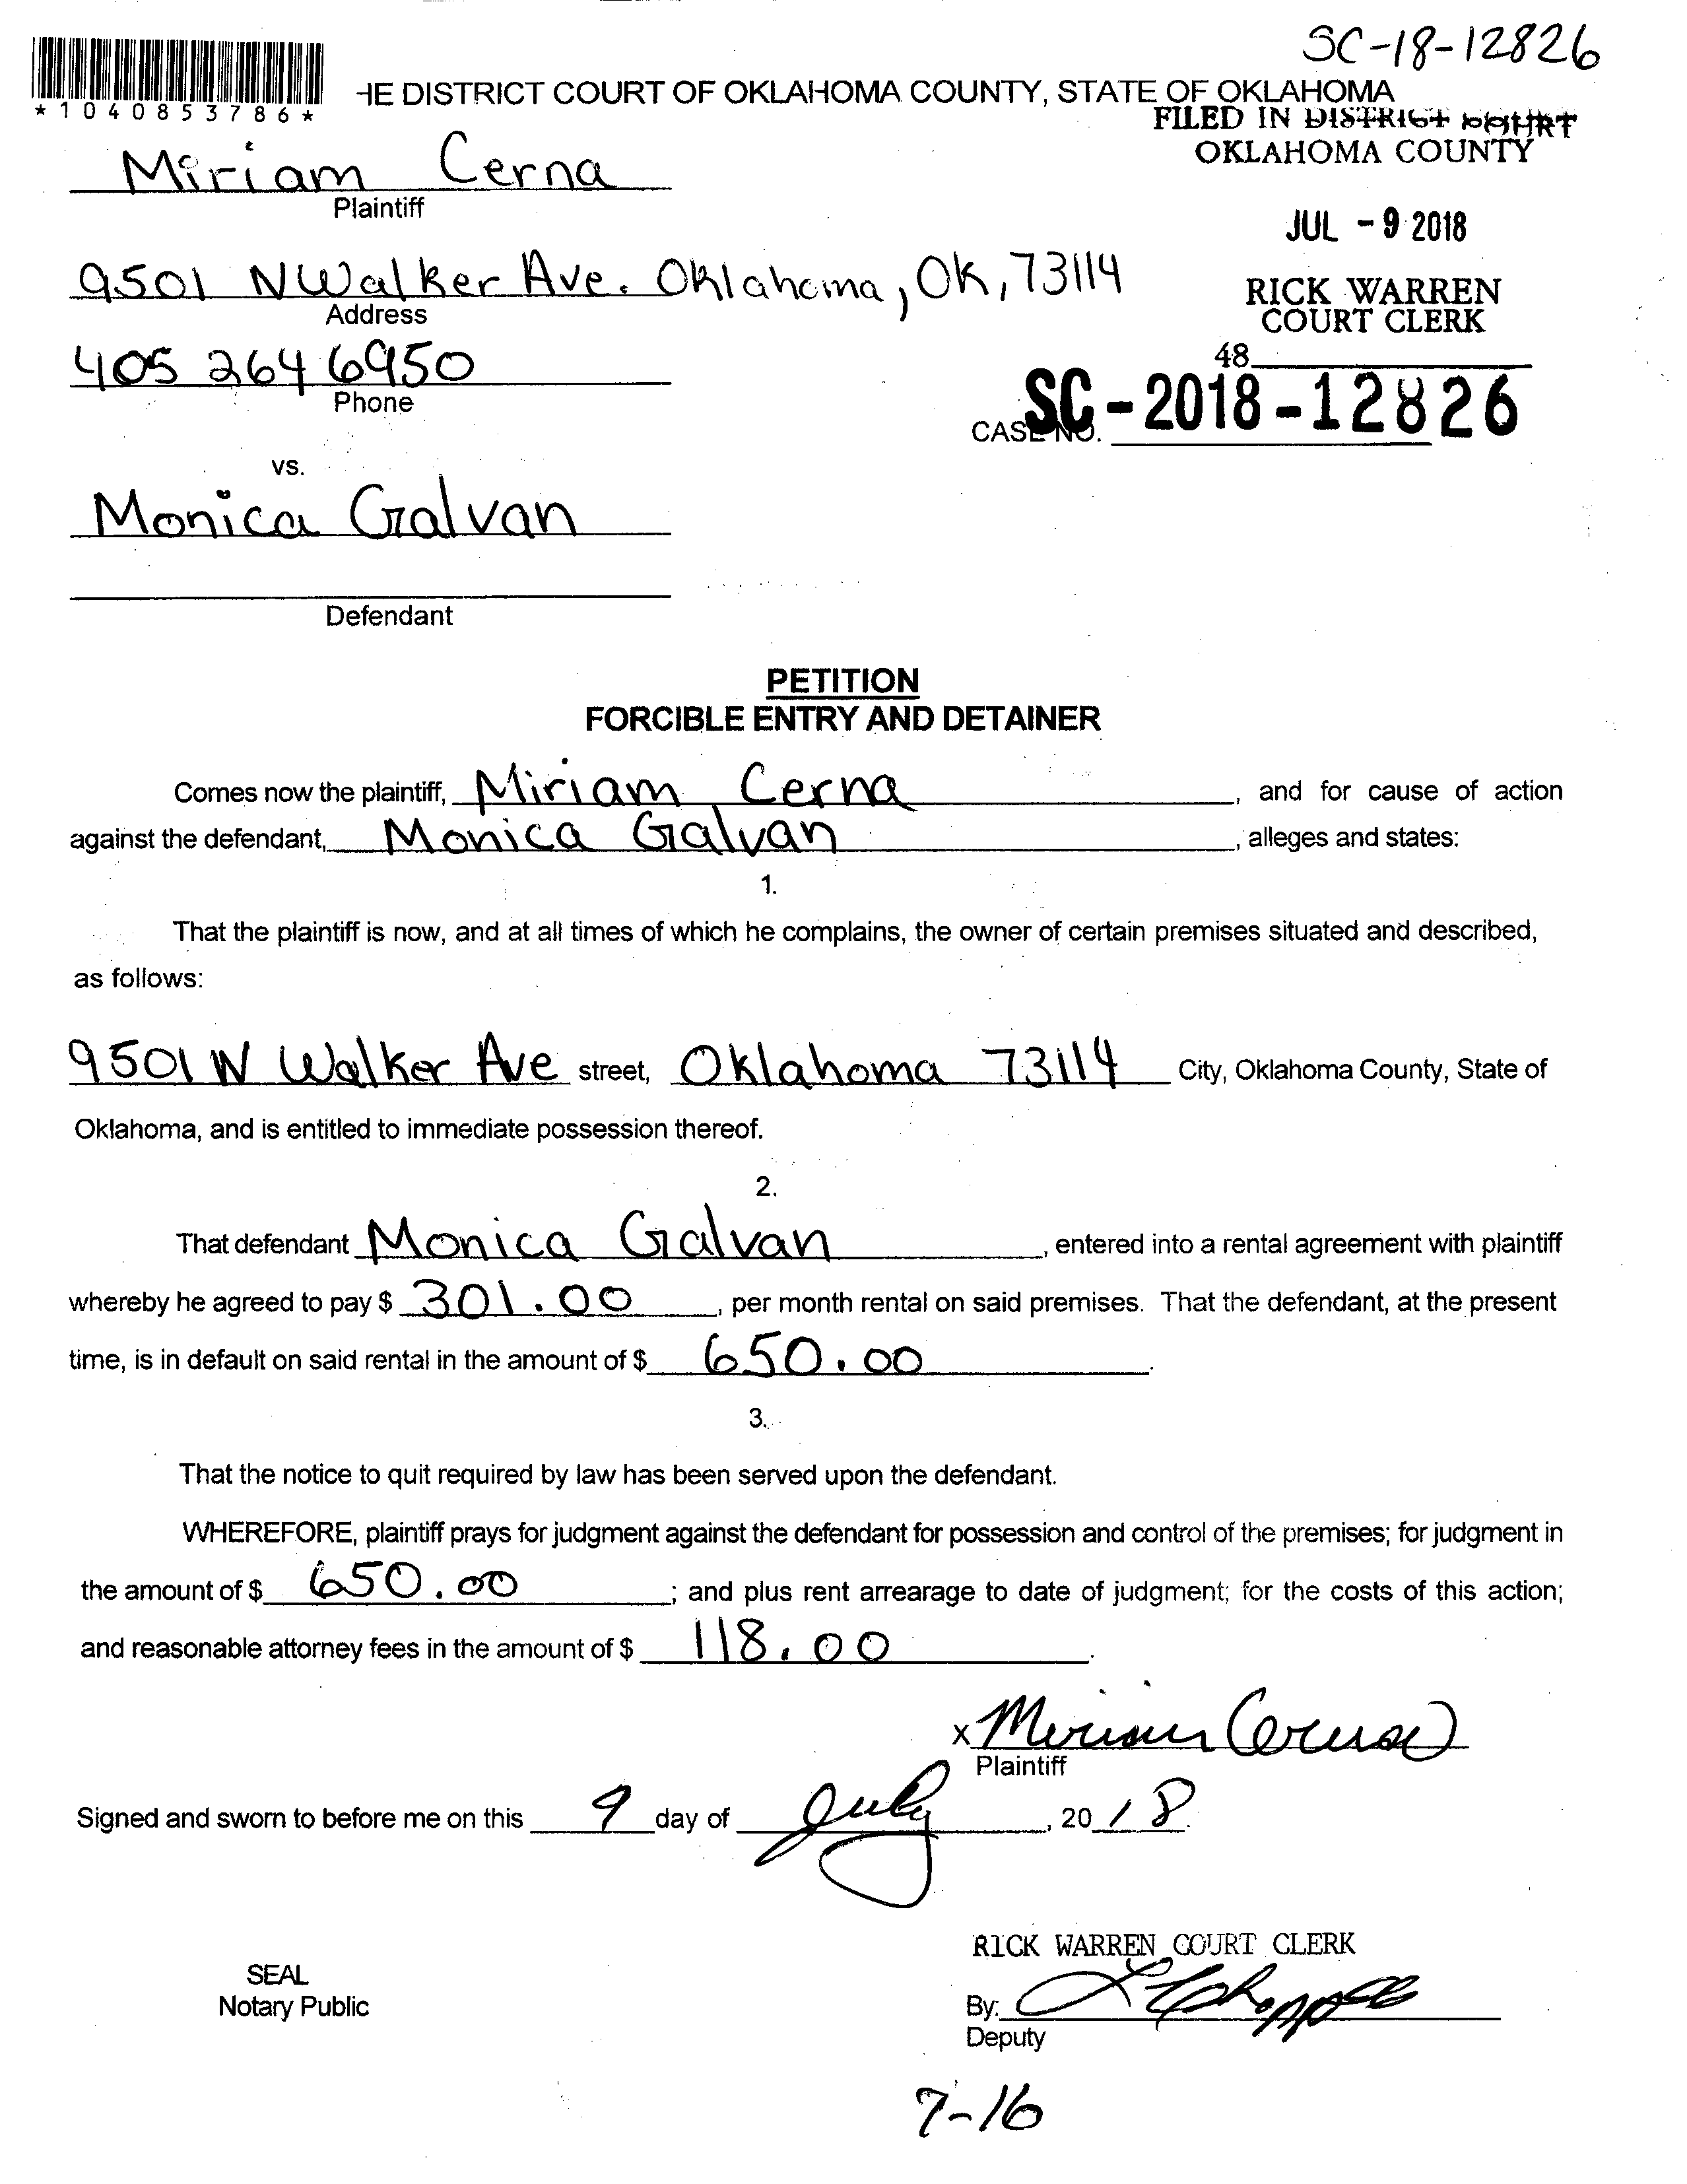 SC-18-12826
*1040853786*
HE DISTRICT COURT OF OKLAHOMA COUNTY, STATE OF OKLAHOMA
FILED IN DISTRICT COURT
OKLAHOMA COUNTY
Miriam Cerna
Plaintiff
JUL - 9 2018
9501 N Walker Ave. Oklahoma, OK, 73114
Address
RICK WARREN
COURT CLERK
405 264 6950
Phone
48
CASE NO. SC-2018-12826
vs.
Monica Galvan
Defendant
PETITION
FORCIBLE ENTRY AND DETAINER
Comes now the plaintiff, Miriam Cerna, and for cause of action
against the defendant, Monica Galvan, alleges and states:
1.
That the plaintiff is now, and at all times of which he complains, the owner of certain premises situated and described,
as follows:
9501 N Walker Ave street, Oklahoma 73114 City, Oklahoma County, State of
Oklahoma, and is entitled to immediate possession thereof.
2.
That defendant Monica Galvan, entered into a rental agreement with plaintiff
whereby he agreed to pay $ 301.00, per month rental on said premises. That the defendant, at the present
time, is in default on said rental in the amount of $ 650.00.
3.
That the notice to quit required by law has been served upon the defendant.
WHEREFORE, plaintiff prays for judgment against the defendant for possession and control of the premises; for judgment in
the amount of $ 650.00; and plus rent arrearage to date of judgment; for the costs of this action;
and reasonable attorney fees in the amount of $ 118.00.
x Miriam Cerna
Plaintiff
Signed and sworn to before me on this 9 day of July, 2018.
RICK WARREN COURT CLERK
SEAL
Notary Public
By:
Deputy
7-16